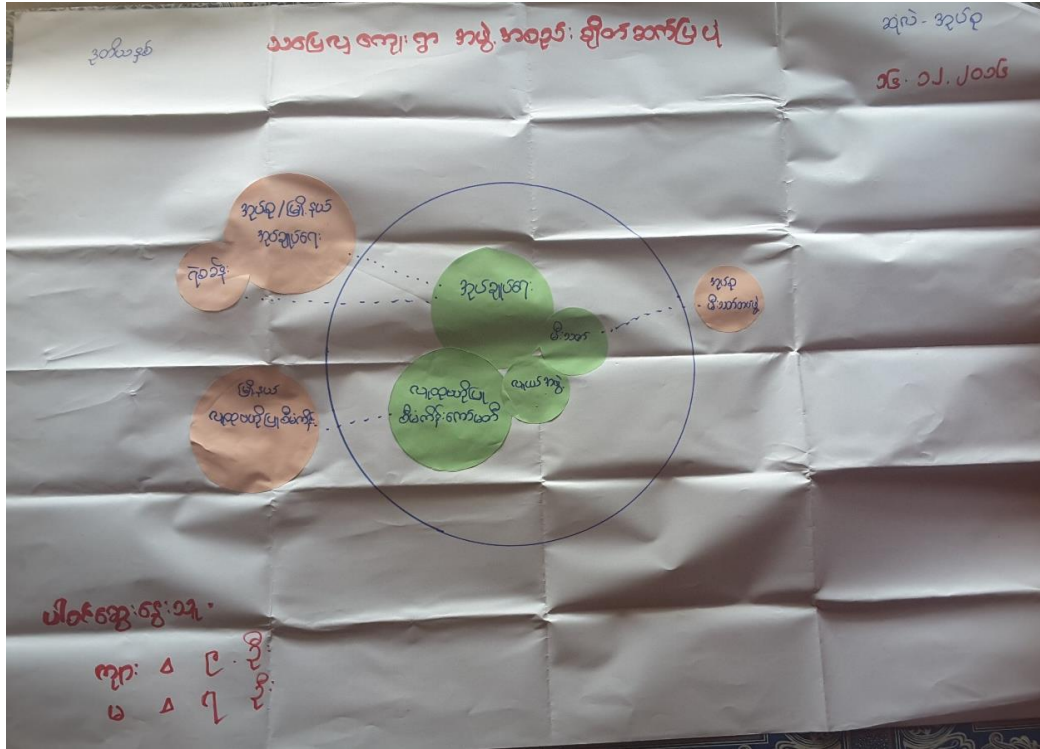 ဒုတိယနှစ်
သပြေလှ ကျေးရွာ အဖွဲ့အစည်း ချိတ်ဆက်ပြပုံ
ဆုံလဲ - အုပ်စု
၁၆.၁၂.၂၀၁၆
အုပ်စု / မြို့နယ်
အုပ်ချုပ်ရေး
ရဲစခန်း
အုပ်ချုပ်ရေး
မီးသတ်
အုပ်စု
မီးသတ်တပ်ဖွဲ့
မြို့နယ်
လူထုဗဟိုပြုစီမံကိန်း
လူထုဗဟိုပြု
စီမံကိန်းကော်မတီ
လူငယ်အဖွဲ့
ပါဝင်ဆွေးနွေးသူ
ကျား ၎ ဦး
မ ၇ ဦး